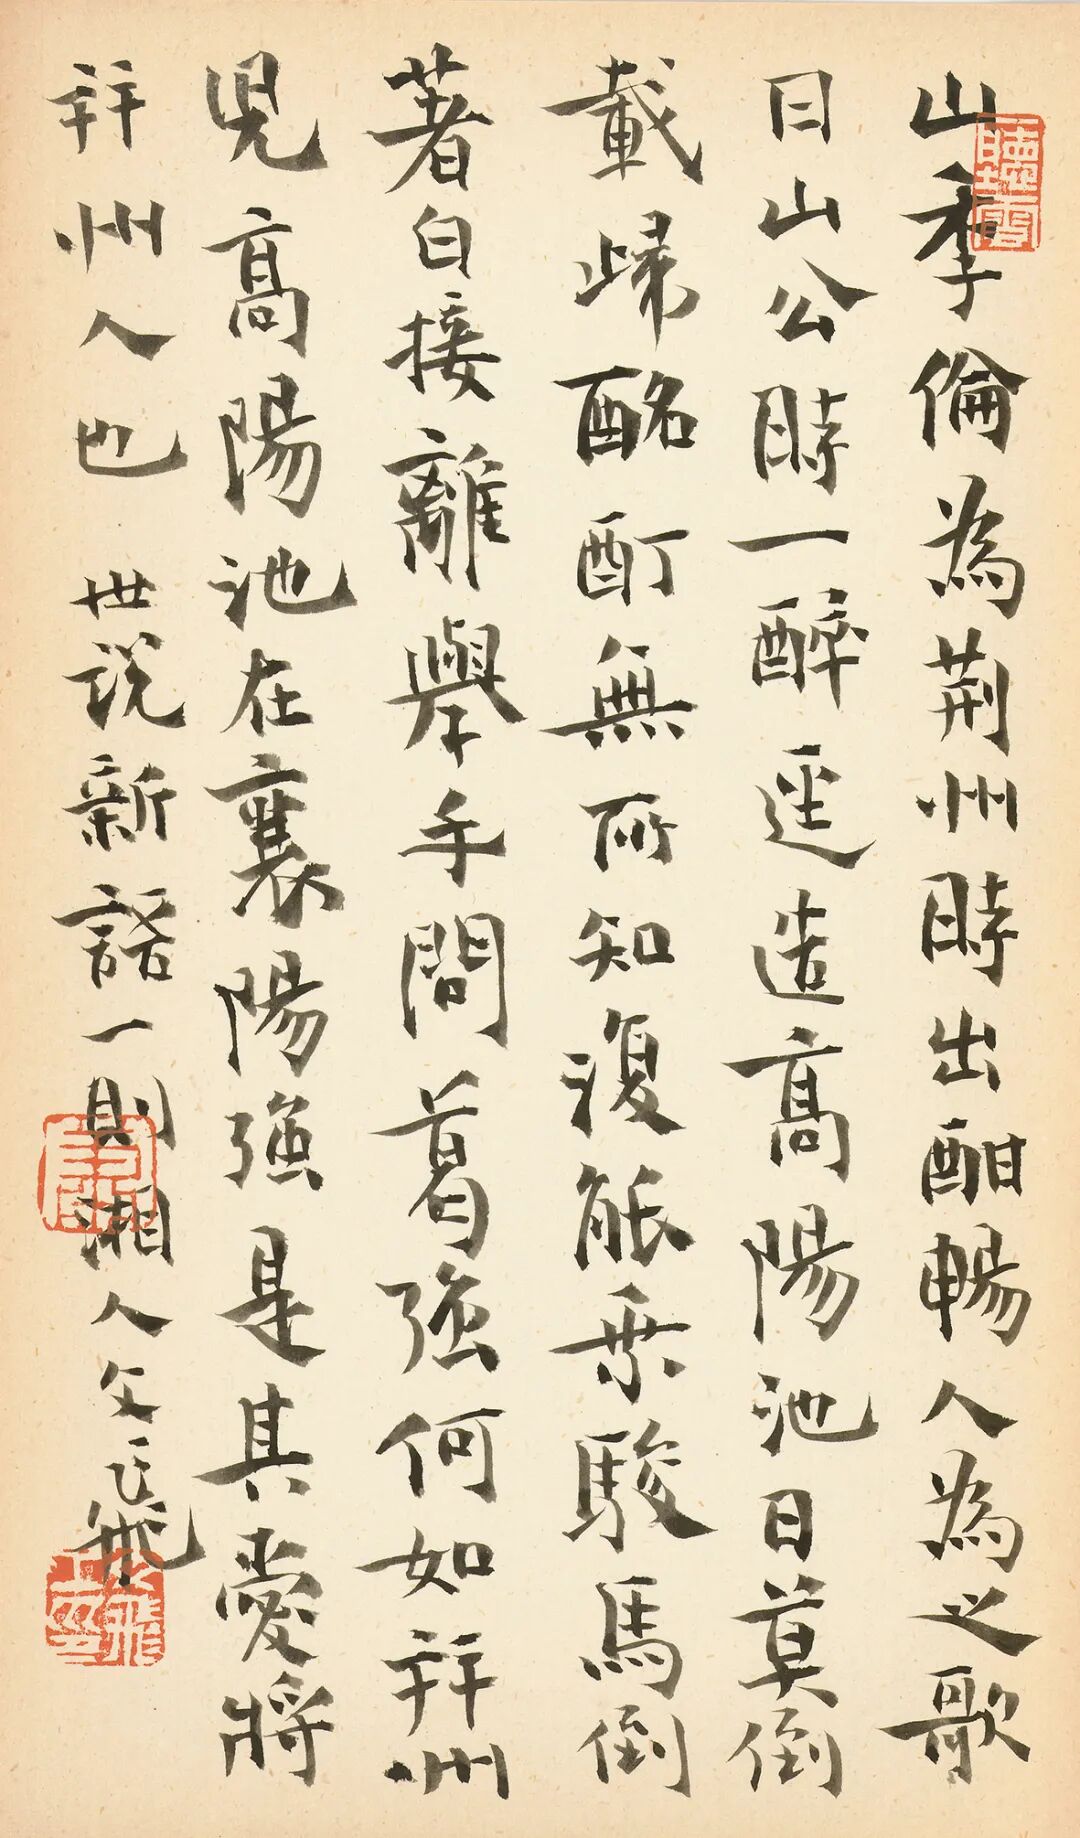 山季倫為荆州時出酣暢人為之歌
曰山公時一醉逕造高陽池日莫倒
載歸酩酊無所知復能乘駿馬倒
著白接離舉手問葛強何如并州
兒高陽池在襄陽強是其愛將
并州人也 世說新語一則湘人文正飛
聽雪